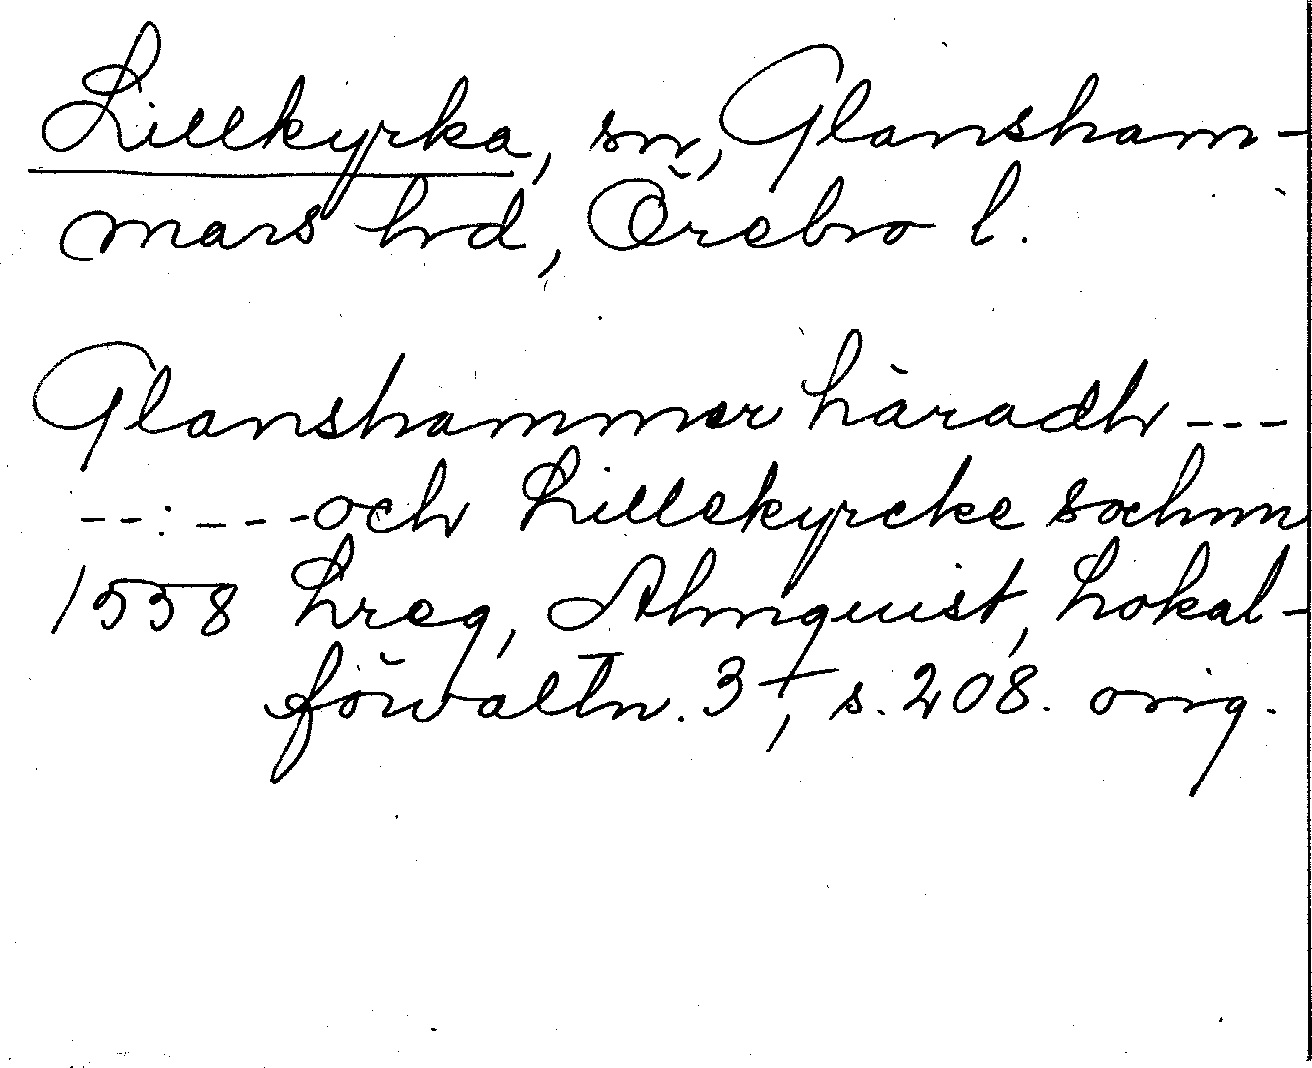 Lillkyrka, sn, Glansham-
mars hrd, Örebro l.
Glanshammer häradh ---
--:---och Lillekyrcke sochnn
1558 Lreg, Almquist, Lokal-
förvaltn. 3+, s. 208. orig.